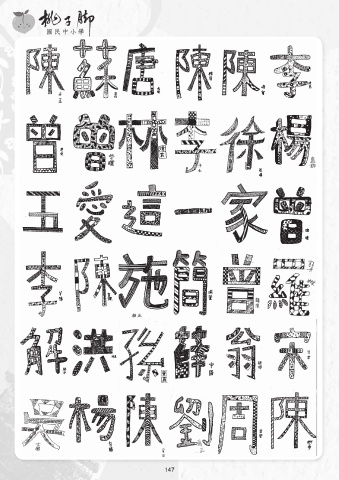 桃子腳
國民中小學
陳蘇唐陳陳李
曾曾林李徐楊
五愛這一家曾
李陳施簡曾羅
解洪孫薛翁宋
吳楊陳劉周陳
147